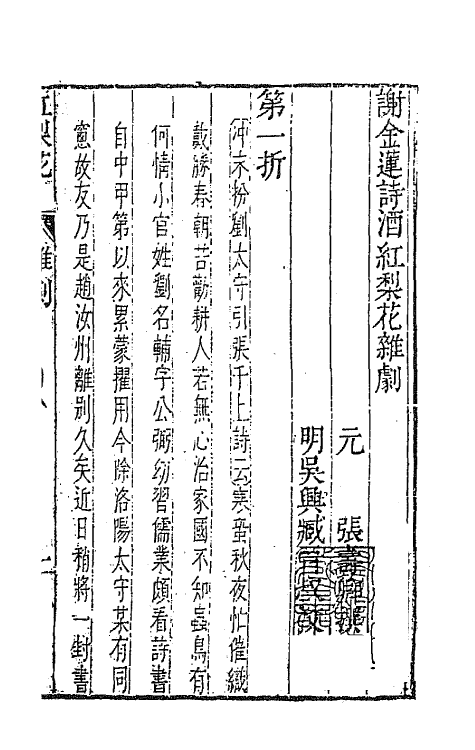 謝金蓮詩酒紅梨花雜劇
元 張壽卿撰
明吳興臧晉叔校
第一折
冲末扮劉太守引張千上詩云寒蛩秋夜忙催織
戴勝春朝苦勸耕人若無心治家國不知蟲鳥有
何情小官姓劉名輔字公弼幼習儒業頗看詩書
自中甲第以來累蒙擢用今除洛陽太守某有同
窻故友乃是趙汝州離别久矣近日稍將一封書
紅梨花 雜劇